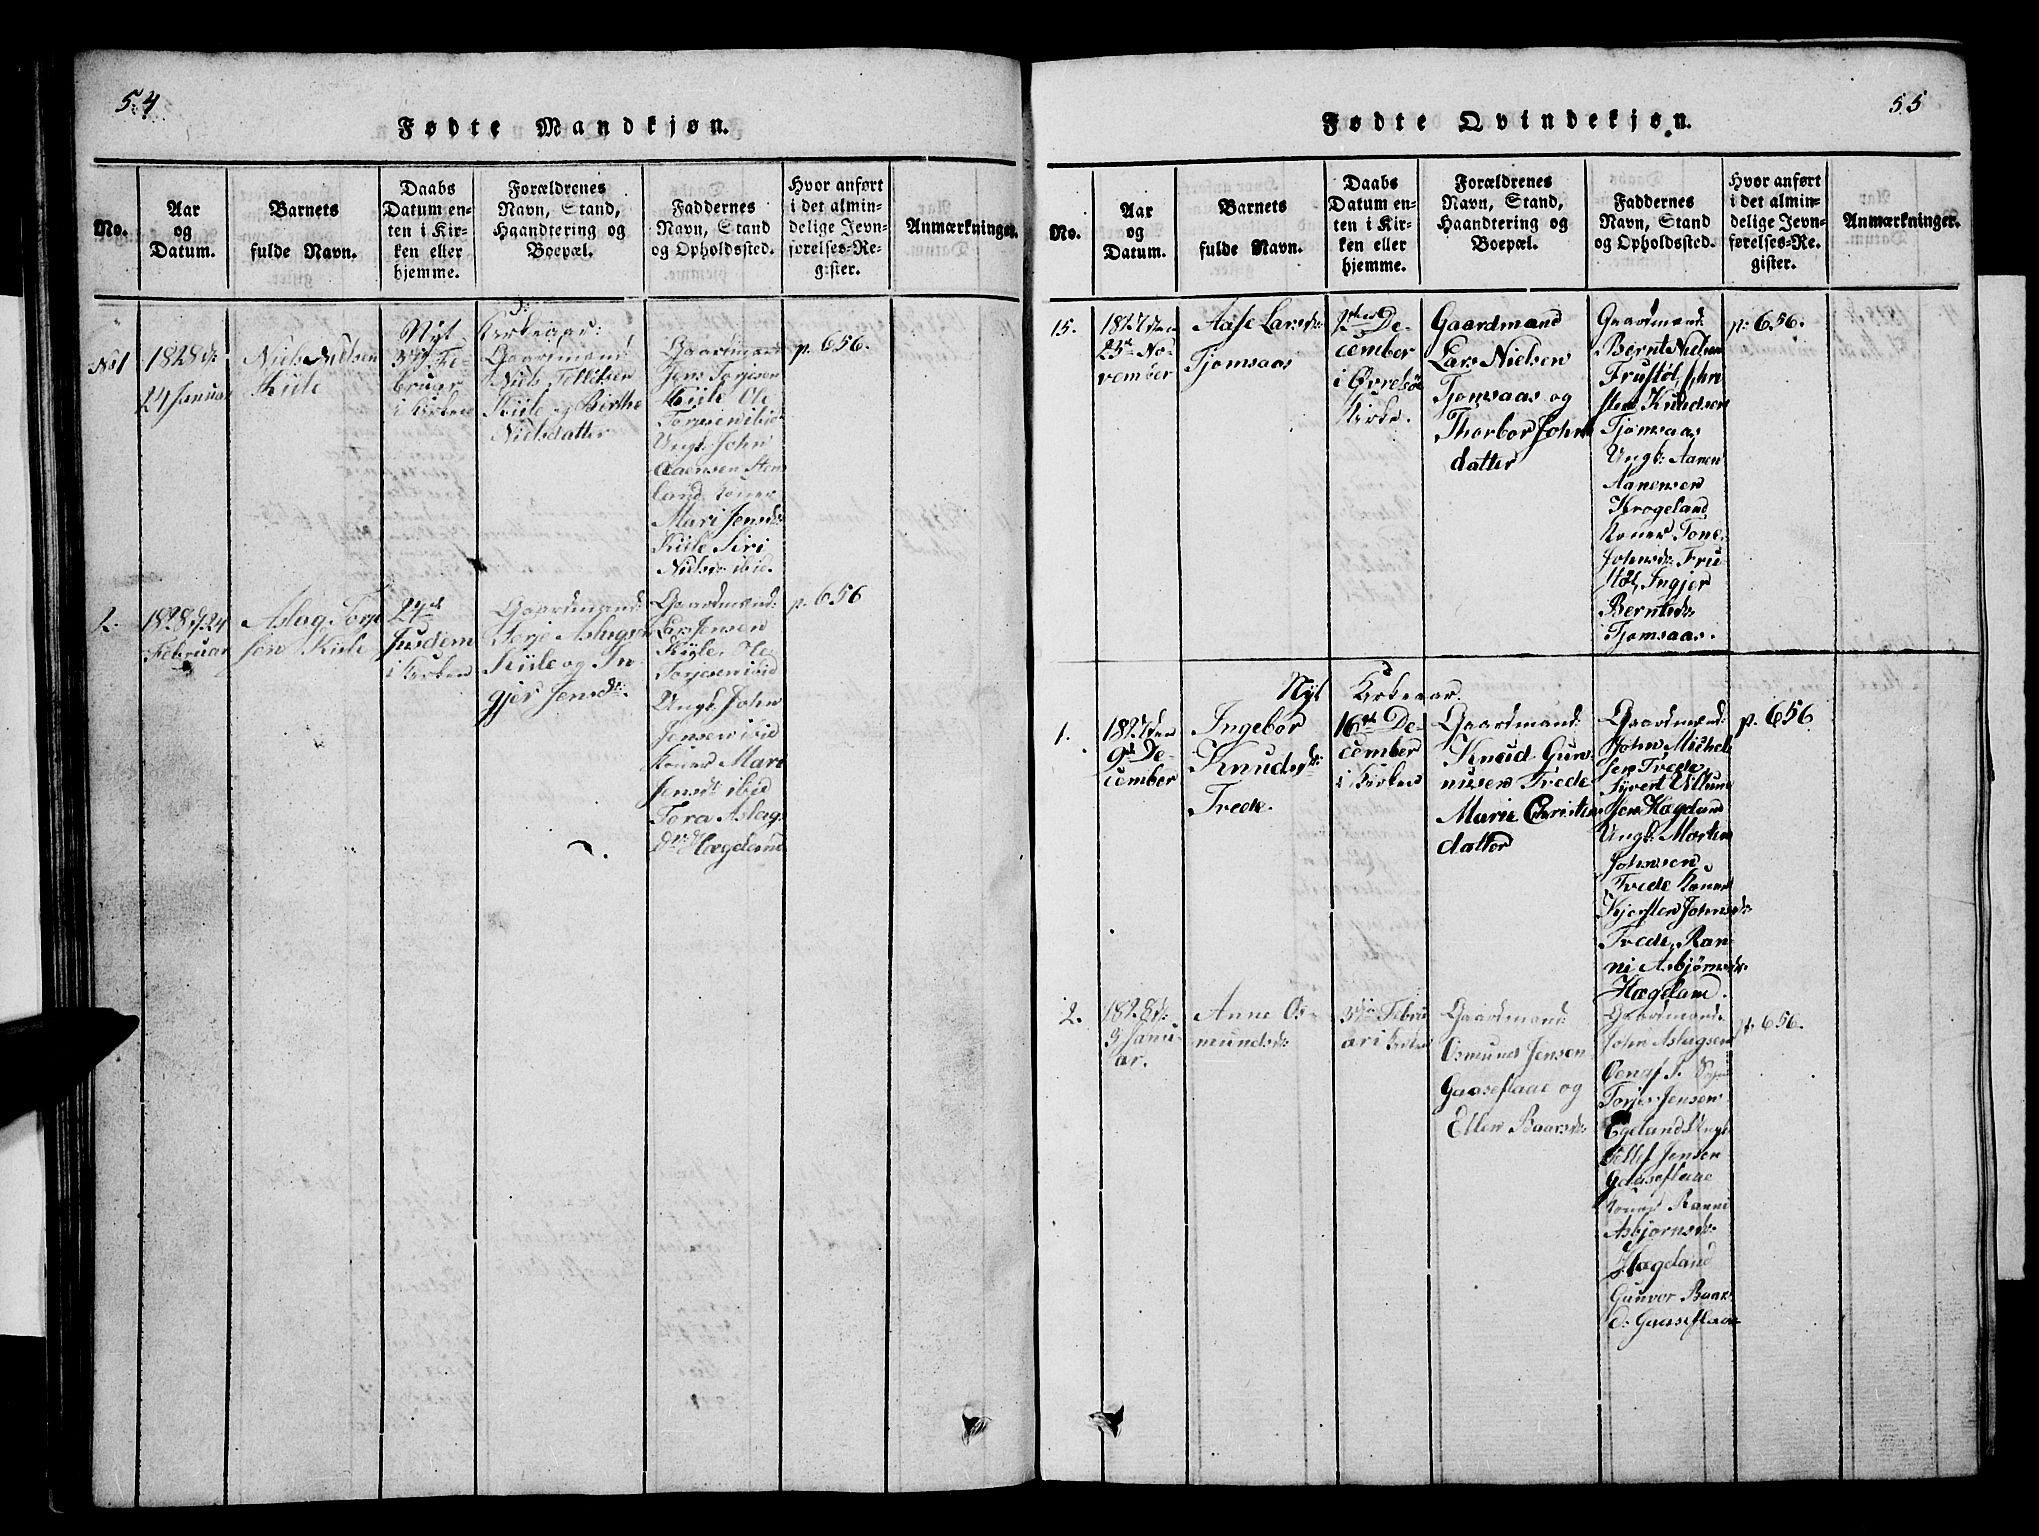 54
Fødte Mandkjøn.
No.
Aar
og
Datum.
Barnets
fulde Navn.
Daabs
Datum en-
ten i Kir-
ken eller
hjemme.
Forældrenes
Navn, Stand,
Haandtering og
Boepæl.
Faddernes
Navn, Stand
og Opholdssted.
Hvor anført
i det almin-
delige Jevn-
førelses-Re-
gister.
Anmærkninger.
Nyt Kirkeaar:
No 1
1828 d:
24 Januar
Niels Nielsen
Kiile
3die Fe-
bruar
i Kirken
Gaardmand
Niels Tellefsen
Kiile og Birthe
Nielsdatter
Gaardmænd
Jens Torjesen
Kiile Ole
Torjesen ibid
Ungk: John
Aaensen
land Koner
Mari Jensd:
Kiile Siri
Nielsd: ibid.
p. 656.
2.
1828 d 24
Februar
Aslag Torje
sen Kiile
24de
Jusdem
i Kirken
Gaardmand:
Torje Aslagsen
Kiile og In-
gjer Jensd:
Gaardmænd:
Lars Jensen
Kiile, Ole
Torjesen ibid
Ungk: John
Jensen ibid
Koner Mari
Jensd: ibid
Tora Aslag
dr: Hægeland
p. 656
55
Fødte Qvindekjøn.
No.
Aar
og
Datum.
Barnets
fulde Navn.
Daabs
Datum en-
ten i Kir-
ken eller
hjemme.
Forældrenes
Navn, Stand,
Haandtering og
Boepæl.
Faddernes
Navn, Stand
og Opholdssted.
Hvor anført
i det almin-
delige Jevn-
førelses-Re-
gister.
Anmærkninger.
15.
1827 den
25de No-
vember
Aase Larsd:
Tjomsaas
2den De-
cember
i Øvrebøe
Kirke.
Gaardmand
Lars Nielsen
Tjomsaas og
Thorbor John
datter
Gaardmænd:
Bernt Nielsen
Frustøl, Chri
sten Knudsen
Tjomsaas
Ungk: Aanen
Aanensen
Krogeland
Koner Tone
Johnsd: Fru
støl, Ingjer
Berntsd:
Tjomsaas.
p: 656.
Nyt Kirkeaar.
1.
1827 den
9de De-
cember
Ingebor
Knudsd:
Trede.
16de De-
cember
i Kirken
Gaardmand:
Knud Gun-
nusen Trede
Marie Christen
datter
Gaardmænd:
John Michel
sen Trede,
Syvert Villum
sen Hægeland
Ungk: Morten
Johnsen
Trede Koner
Kjersten Johnsd:
Trede, Ran-
ni Asbjørnsd:
Hægeland.
p. 656
2.
1828 d:
3 Janu-
ar.
Anne Os-
mundsd:
3die Febru
ar i Kirken
Gaardmand:
Osmund Jensen
Gaaseflaae og
Ellen Baarsd:
Gaardmænd:
John Aslagsen
Torjes Jensen
Egeland Ungk:
Tellef Jensen
Gaaseflaae
Koner Ranni
Asbjørnsd:
Hægeland
Gunvor Baar
d: Gaaseflaae
p. 656.